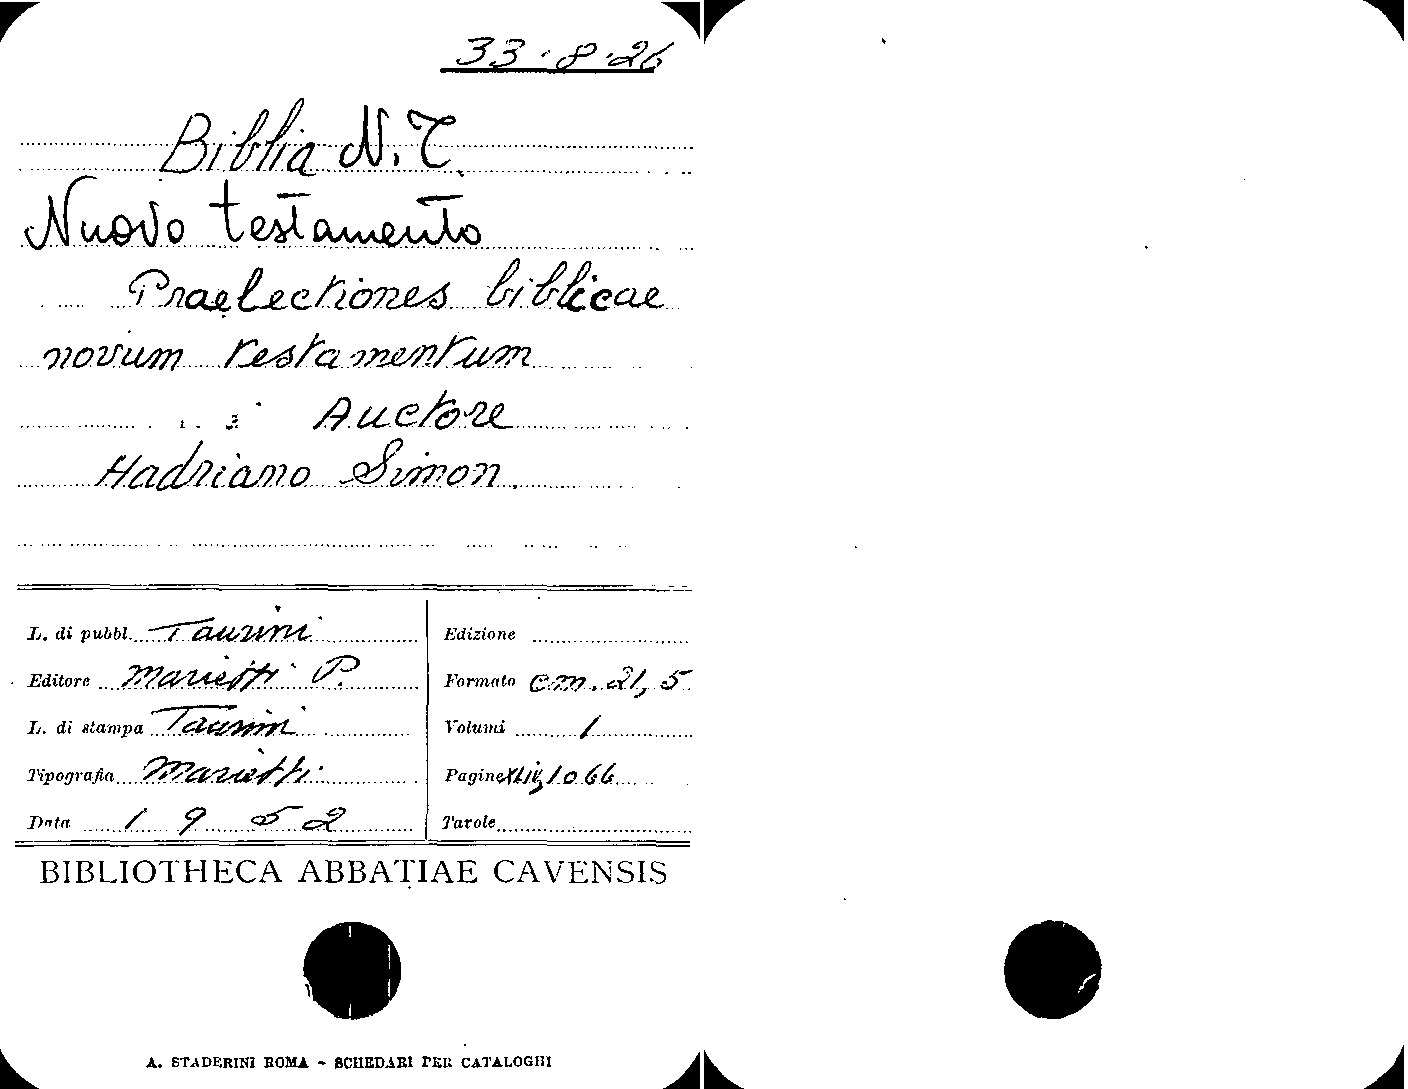 33·8·26
Biblia N.T.
Nuovo testamento
Praelectiones biblicae
novum testamentum
Auctore
Hadriano Simon.
L. di pubbl. Taurini
Edizione
Editore Marietti P.
Formato cm. 21,5
L. di stampa Taurini
Volumi 1
Tipografia Marietti
Pagine xliv, 1066
Data 1952
Tavole
BIBLIOTHECA ABBATIAE CAVENSIS
A. STADERINI ROMA - SCHEDARI PER CATALOGHI